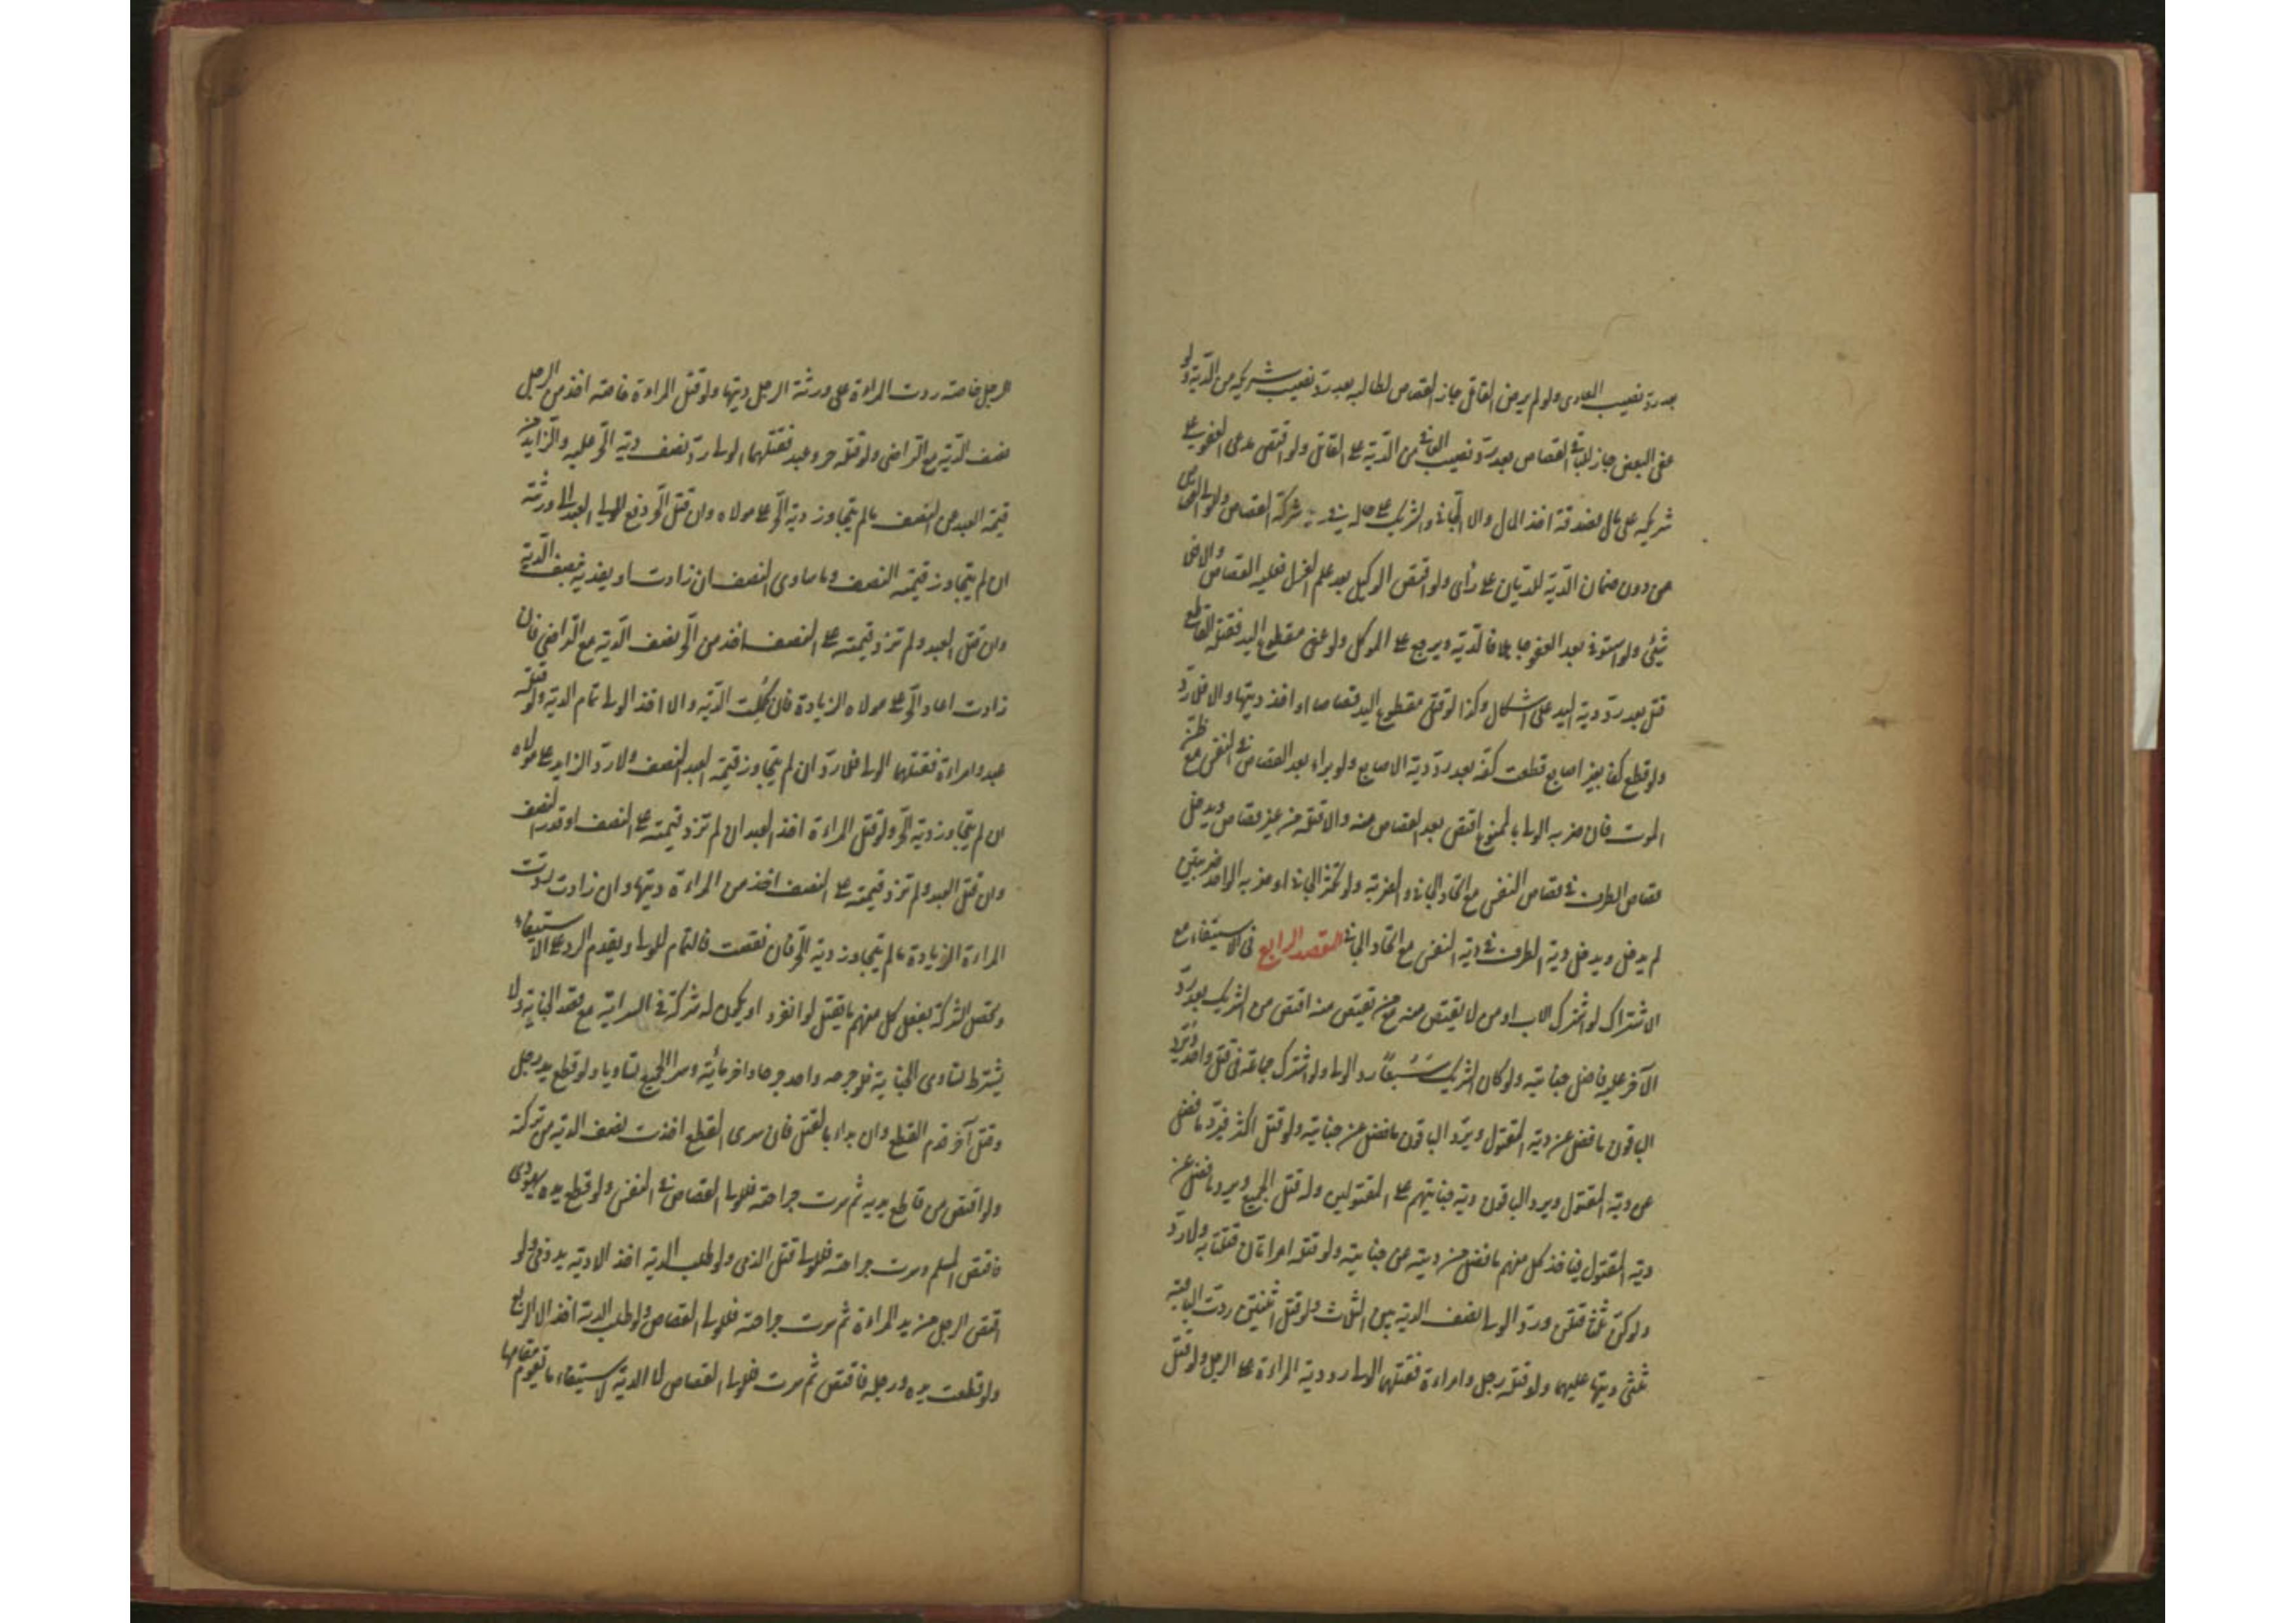 بعد ردّ نصيب الفادى ولو لم يرض القاتل جاز القصاص لطالبه بعد ردّ نصيب شريكه من الدّية ولو
عفى البعض جاز للباقى القصاص بعد ردّ نصيب العافى من الدّية على القاتل ولو اقتص مدعى العفو على
شريكه على مال فصدقه اخذ المال والا الجانى والشريك على حاله فى شركة القصاص وللولى القصاص
من دون ضمان الدّية للديّان على رأى ولو اقتص الوكيل بعد علم العزل فعليه القصاص والا فلا
شئ ولو استوفى بعد العفو جاهلا فالدّية ويرجع على الموكل ولو عفى مقطوع اليد فقتله القاطع
قتل بعد ردّ دية اليد على اشكال وكذا لو قتل مقطوع اليد قصاصا او اخذ ديتها والا فلا ردّ
ولو قطع كفا بغير اصابع قطعت كفه بعد ردّ دية الاصابع ولو براء بعد القصاص فى النفس مع ظن
الموت فان ضربه الولى بالممنوع اقتص بعد القصاص منه والا قتله من غير قصاص ويدخل
قصاص الطرف فى قصاص النفس مع اتحاد الجانى والضربة ولو تكثر الجانى او ضربه الواحد ضربتين
لم يدخل ويدخل دية الطرف فى دية النفس مع اتحاد الجانى المقصد الرابع فى الاستيفاء مع
الاشتراك لو اشترك الاب او من لا يقتص منه مع من يقتص منه اقتص من الشريك بعد ردّ
الآخر عليه فاضل جنايته ولو كان الشريك سَبُعًا ردّ الولى ولو اشترك جماعة فى قتل واحد يردّ
الباقون ما فضل عن دية المقتول ويردّ الباقون ما فضل عن جنايته ولو قتل اكثر فيردّ ما فضل
عن دية المقتول ويرد الباقون دية جنايتهم على المقتولين ولو قتل الجميع ويرد ما فضل عن
دية المقتول فياخذ كل منهم ما فضل من ديته عن جنايته ولو قتله امراتان قتلتا به ولا ردّ
ولو كنّ ثلثا قتلن وردّ الولى نصف الدية بين الثلاث ولو قتل اثنتين ردت الباقية
ثلثى ديتها عليهما ولو قتله رجل وامراءة فقتلهما الولى رد دية المراءة على الرجل ولو قتل
الرجل خاصة ردت المراءة على ورثة الرجل ديتها ولو قتل المراءة خاصة اخذ من الرجل
نصف الدّية مع التراضى ولو قتله حر وعبد فقتلهما الولى ردّ نصف دية الحرّ عليه والزايد من
قيمة العبد عن النصف ما لم يتجاوز دية الحرّ على مولاه وان قتل الحرّ دفع المولى العبد الى ورثته
ان لم يتجاوز قيمته النصف وما ساوى النصف ان زادت او يفديه بنصف الدّية
وان قتل العبد ولم تزد قيمته على النصف اخذ من الحرّ نصف الدّية مع التراضى فان
زادت اعاد الحرّ على مولاه الزيادة فان كُمِّلت الدّية والا اخذ الولى تمام الدية ولو قتله
عبد وامراءة فقتلهما الولى فلا ردّ ان لم يتجاوز قيمة العبد النصف والا ردّ الزايد على مولاه
ان لم يتجاوز دية الحرّ ولو قتل المراءة اخذ العبد ان لم تزد قيمته على النصف او قدر النصف
وان قتل العبد ولم تزد قيمته على النصف اخذ من المراءة ديتها وان زادت ردت
المراءة الزيادة ما لم يتجاوز دية الحرّ فان نقصت فالتمام للولى ويقدم الرد على الاستيفاء
وتحصل الشركة بفعل كل منهم ما يقتل لو انفرد او يكون له شركة فى السراية مع قصد الجناية ولا
يشترط تساوى الجناية فلو جرحه واحد جرحا وآخر مائة وسرا الجميع تساويا ولو قطع يد رجل
وقتل آخر قدم القطع وان بداء بالقتل فان سرى القطع اخذت نصف الدية من تركته
ولو اقتص من قاطع يديه ثم سرت جراحته فللولى القصاص فى النفس ولو قطع يده يهودى
فاقتص المسلم وسرت جراحته فللولى قتل الذمى ولو طلب الدية اخذ الا دية يد ذمى ولو
اقتص الرجل من يد المراءة ثم سرت جراحته فللولى القصاص ولو طلب الدية اخذ الا الربع
ولو قطعت يده ورجله فاقتص ثم سرت فللولى القصاص لا الدية لاستيفاء ما يقوم مقامها